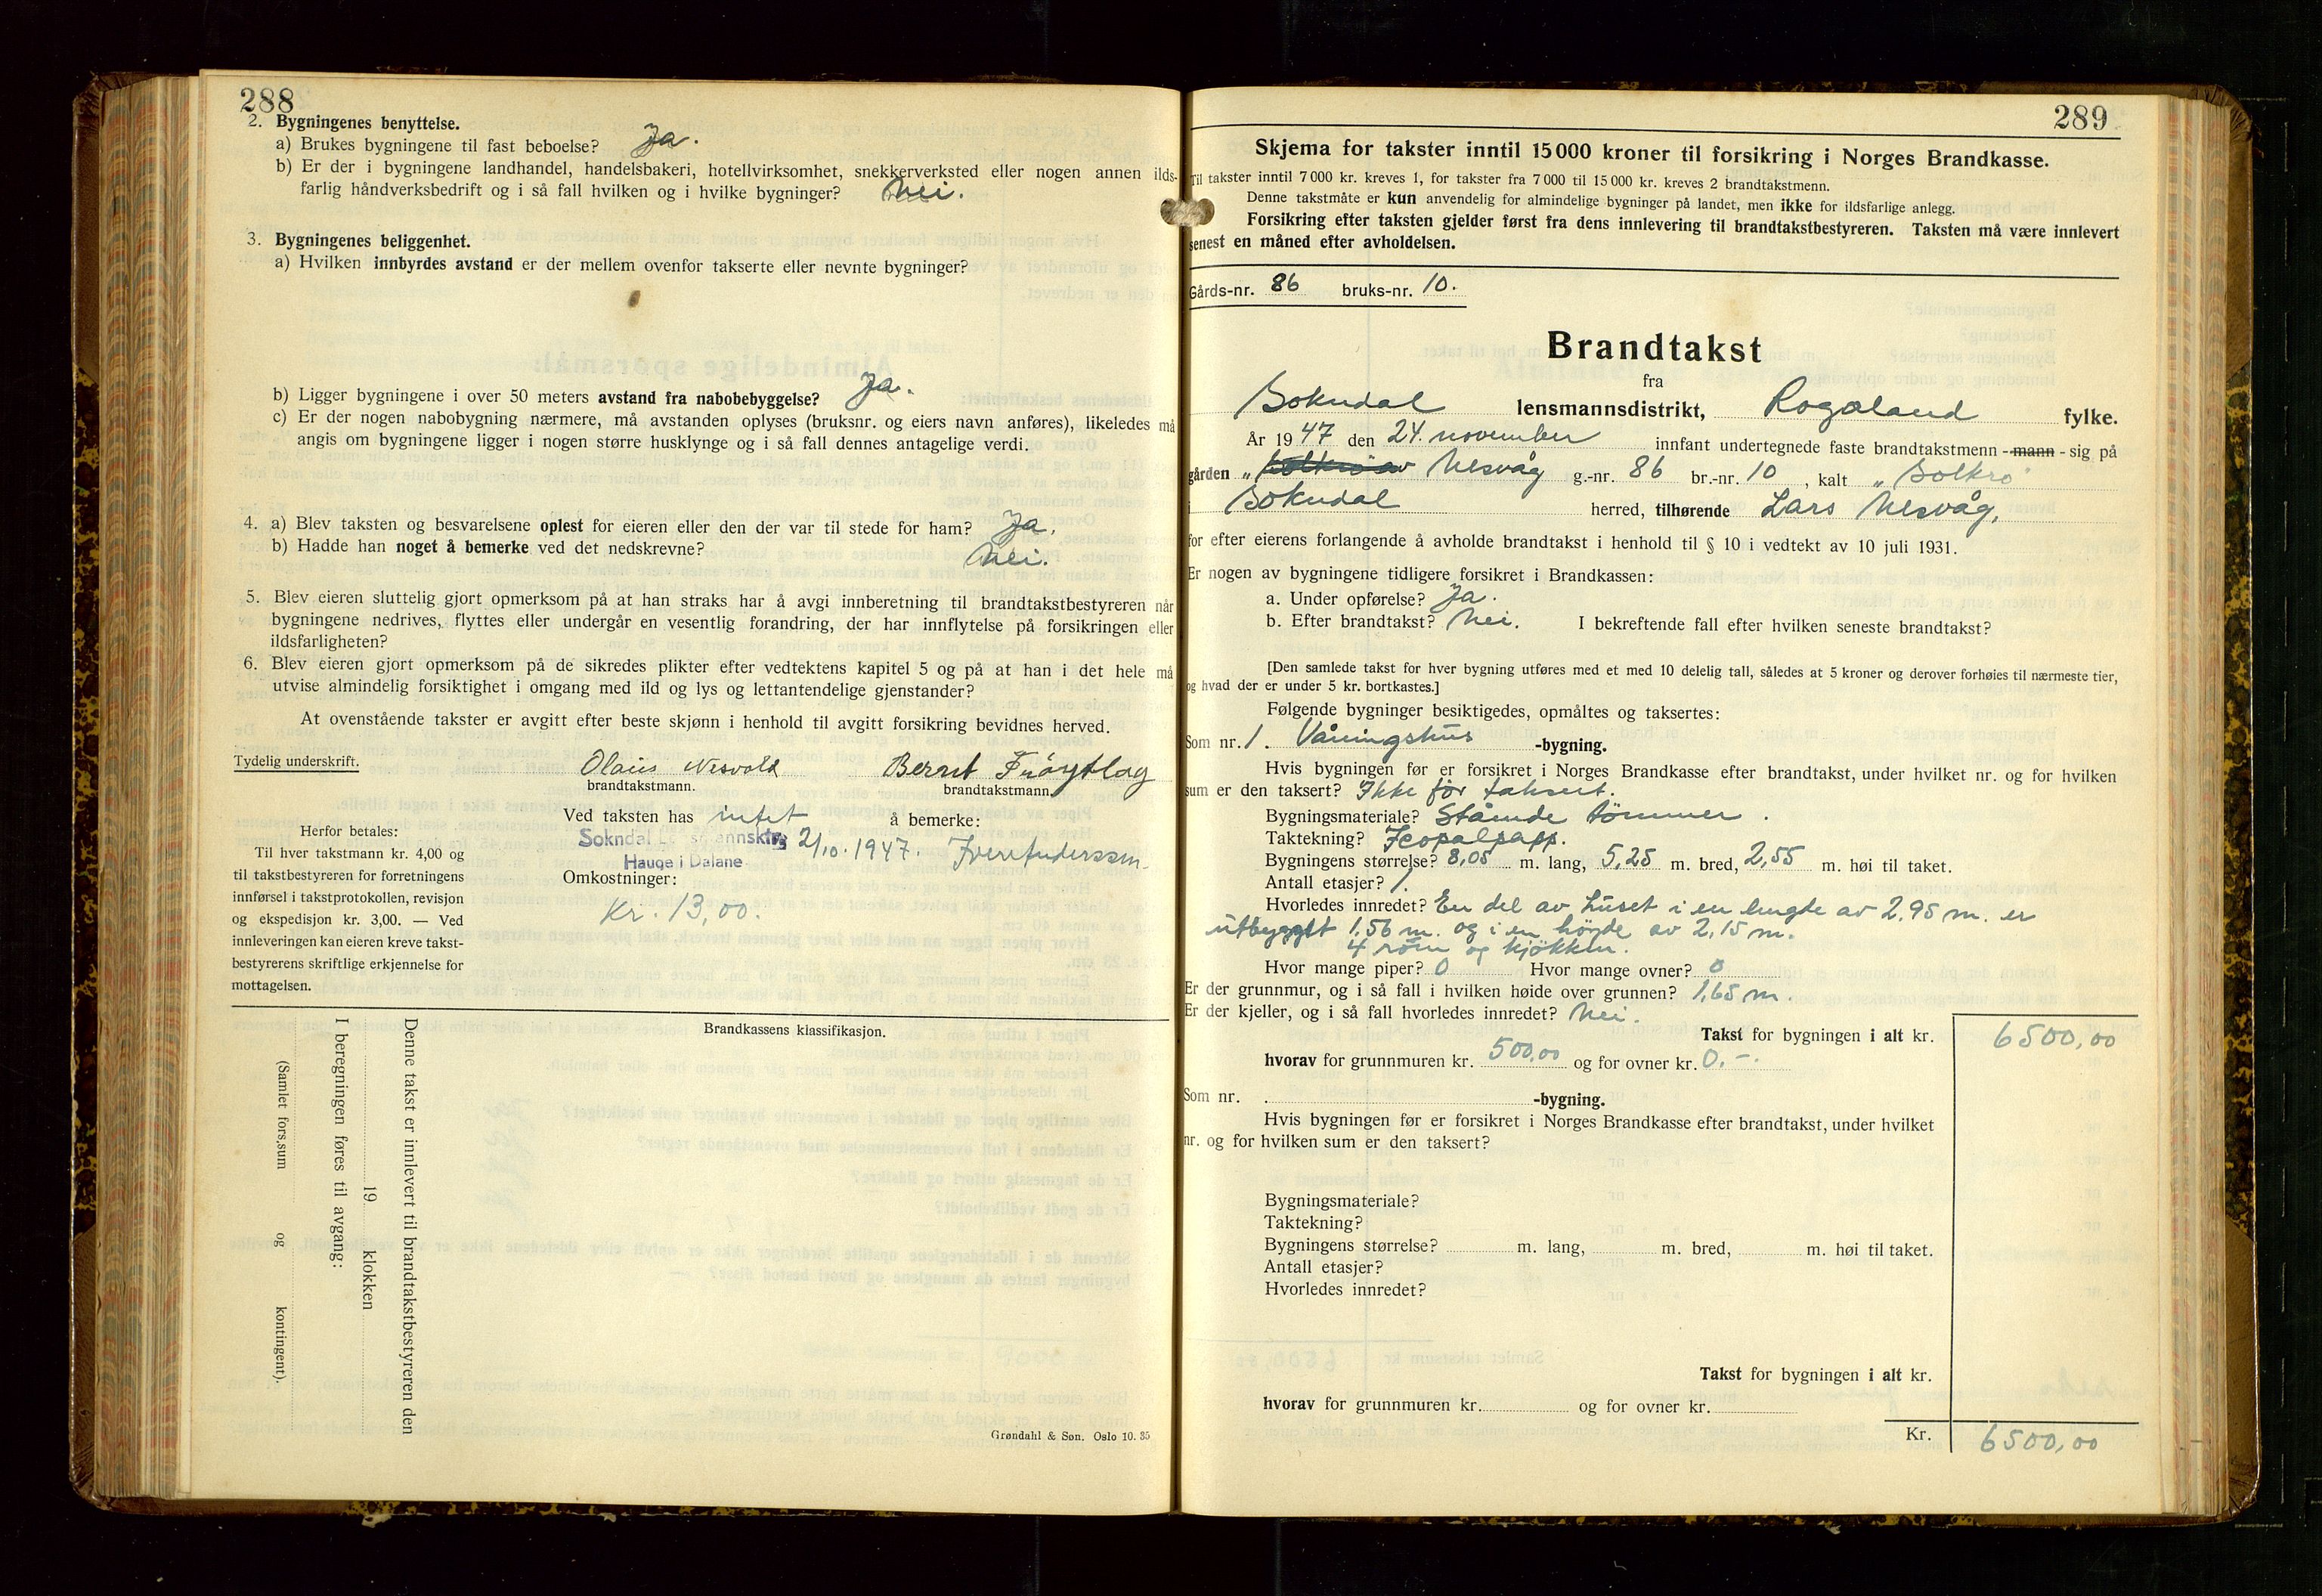 288
2. Bygningenes benyttelse.
a) Brukes bygningene til fast beboelse? Ja.
b) Er der i bygningene landhandel, handelsbakeri, hotellvirksomhet, snekkerverksted eller nogen annen ilds-
farlig håndverksbedrift og i så fall hvilken og i hvilke bygninger? Nei.
3. Bygningenes beliggenhet.
a) Hvilken innbyrdes avstand er der mellem ovenfor takserte eller nevnte bygninger?
b) Ligger bygningene i over 50 meters avstand fra nabobebyggelse? Ja.
c) Er der nogen nabobygning nærmere, må avstanden oplyses (bruksnr. og eiers navn anføres), likeledes må
angis om bygningene ligger i nogen større husklynge og i så fall dennes antagelige verdi.
4. a) Blev taksten og besvarelsene oplest for eieren eller den der var til stede for ham? Ja.
b) Hadde han noget å bemerke ved det nedskrevne? Nei.
5. Blev eieren sluttelig gjort opmerksom på at han straks har å avgi innberetning til brandtakstbestyreren når
bygningene nedrives, flyttes eller undergår en vesentlig forandring, der har innflytelse på forsikringen eller
ildsfarligheten?
6. Blev eieren gjort opmerksom på de sikredes plikter efter vedtektens kapitel 5 og på at han i det hele må
utvise almindelig forsiktighet i omgang med ild og lys og lettantendelige gjenstander?
At ovenstående takster er avgitt efter beste skjønn i henhold til avgitt forsikring bevidnes herved.
Tydelig underskrift. Olaus Nesvold Bernt Frøytlog
brandtakstmann. brandtakstmann
Ved taksten has intet å bemerke:
Sokndal 2/10. 1947.
Hauge i Dalane
Omkostninger:
Kr. 13,00.
Herfor betales:
Til hver takstmann kr. 4,00 og
til takstbestyreren for forretningens
innførsel i takstprotokollen, revisjon
og ekspedisjon kr. 3,00. — Ved
innleveringen kan eieren kreve takst-
bestyrerens skriftlige erkjennelse for
mottagelsen.
Brandkassens klassifikasjon.
Denne takst er innlevert til brandtakstbestyreren den
19 klokken
I beregningen føres til avgang:
(Samlet fors.sum og kontingent).
Grøndahl & Søn, Oslo 10. 35
289
Skjema for takster inntil 15000 kroner til forsikring i Norges Brandkasse.
Til takster inntil 7 000 kr. kreves 1, for takster fra 7 000 til 15 000 kr. kreves 2 brandtakstmenn.
Denne takstmåte er kun anvendelig for almindelige bygninger på landet, men ikke for ildsfarlige anlegg.
Forsikring efter taksten gjelder først fra dens innlevering til brandtakstbestyreren. Taksten må være innlevert
senest en måned efter avholdelsen.
Gårds-nr. 86 bruks-nr. 10.
Brandtakst
fra
Sokndal lensmannsdistrikt, Rogaland fylke.
År 1947 den 24. november innfant undertegnede faste brandtakstmenn - mann - sig på
gården " Nesvåg g.-nr. 86 br.-nr. 10, kalt "Solkro"
i Sokndal herred, tilhørende Lars Nesvåg,
for efter eierens forlangende å avholde brandtakst i henhold til § 10 i vedtekt av 10 juli 1931.
Er nogen av bygningene tidligere forsikret i Brandkassen:
a. Under opførelse? Ja.
b. Efter brandtakst? Nei. I bekreftende fall efter hvilken seneste brandtakst?
[Den samlede takst for hver bygning utføres med et med 10 delelig tall, således at 5 kroner og derover forhøies til nærmeste tier,
og hvad der er under 5 kr. bortkastes.]
Følgende bygninger besiktigedes, opmåltes og taksertes:
Som nr. 1. Våningshus -bygning.
Hvis bygningen før er forsikret i Norges Brandkasse efter brandtakst, under hvilket nr. og for hvilken
sum er den taksert? Ikke før taksert.
Bygningsmateriale? Stående tømmer.
Taktekning? Icopalpapp.
Bygningens størrelse? 8,05 m. lang, 5,25 m. bred, 2,55 m. høi til taket.
Antall etasjer? 1.
Hvorledes innredet? En del av huset i en lengde av 2,95 m. er
utbygget 1,56 m. og i en høyde av 2,15 m.
4 rom og kjøkken.
Hvor mange piper? 0 Hvor mange ovner? 0
Er der grunnmur, og i så fall i hvilken høide over grunnen? 1,65 m.
Er der kjeller, og i så fall hvorledes innredet? Nei.
Takst for bygningen i alt kr. 6500,00
hvorav for grunnmuren kr. 500,00 og for ovner kr. 0.-
Som nr. . -bygning.
Hvis bygningen før er forsikret i Norges Brandkasse efter brandtakst, under hvilket
nr. og for hvilken sum er den taksert?
Bygningsmateriale?
Taktekning?
Bygningens størrelse? m. lang, m. bred, m. høi til taket.
Antall etasjer?
Hvorledes innredet?
Takst for bygningen i alt kr.
hvorav for grunnmuren kr. og for ovner kr.
Kr. 6500,00